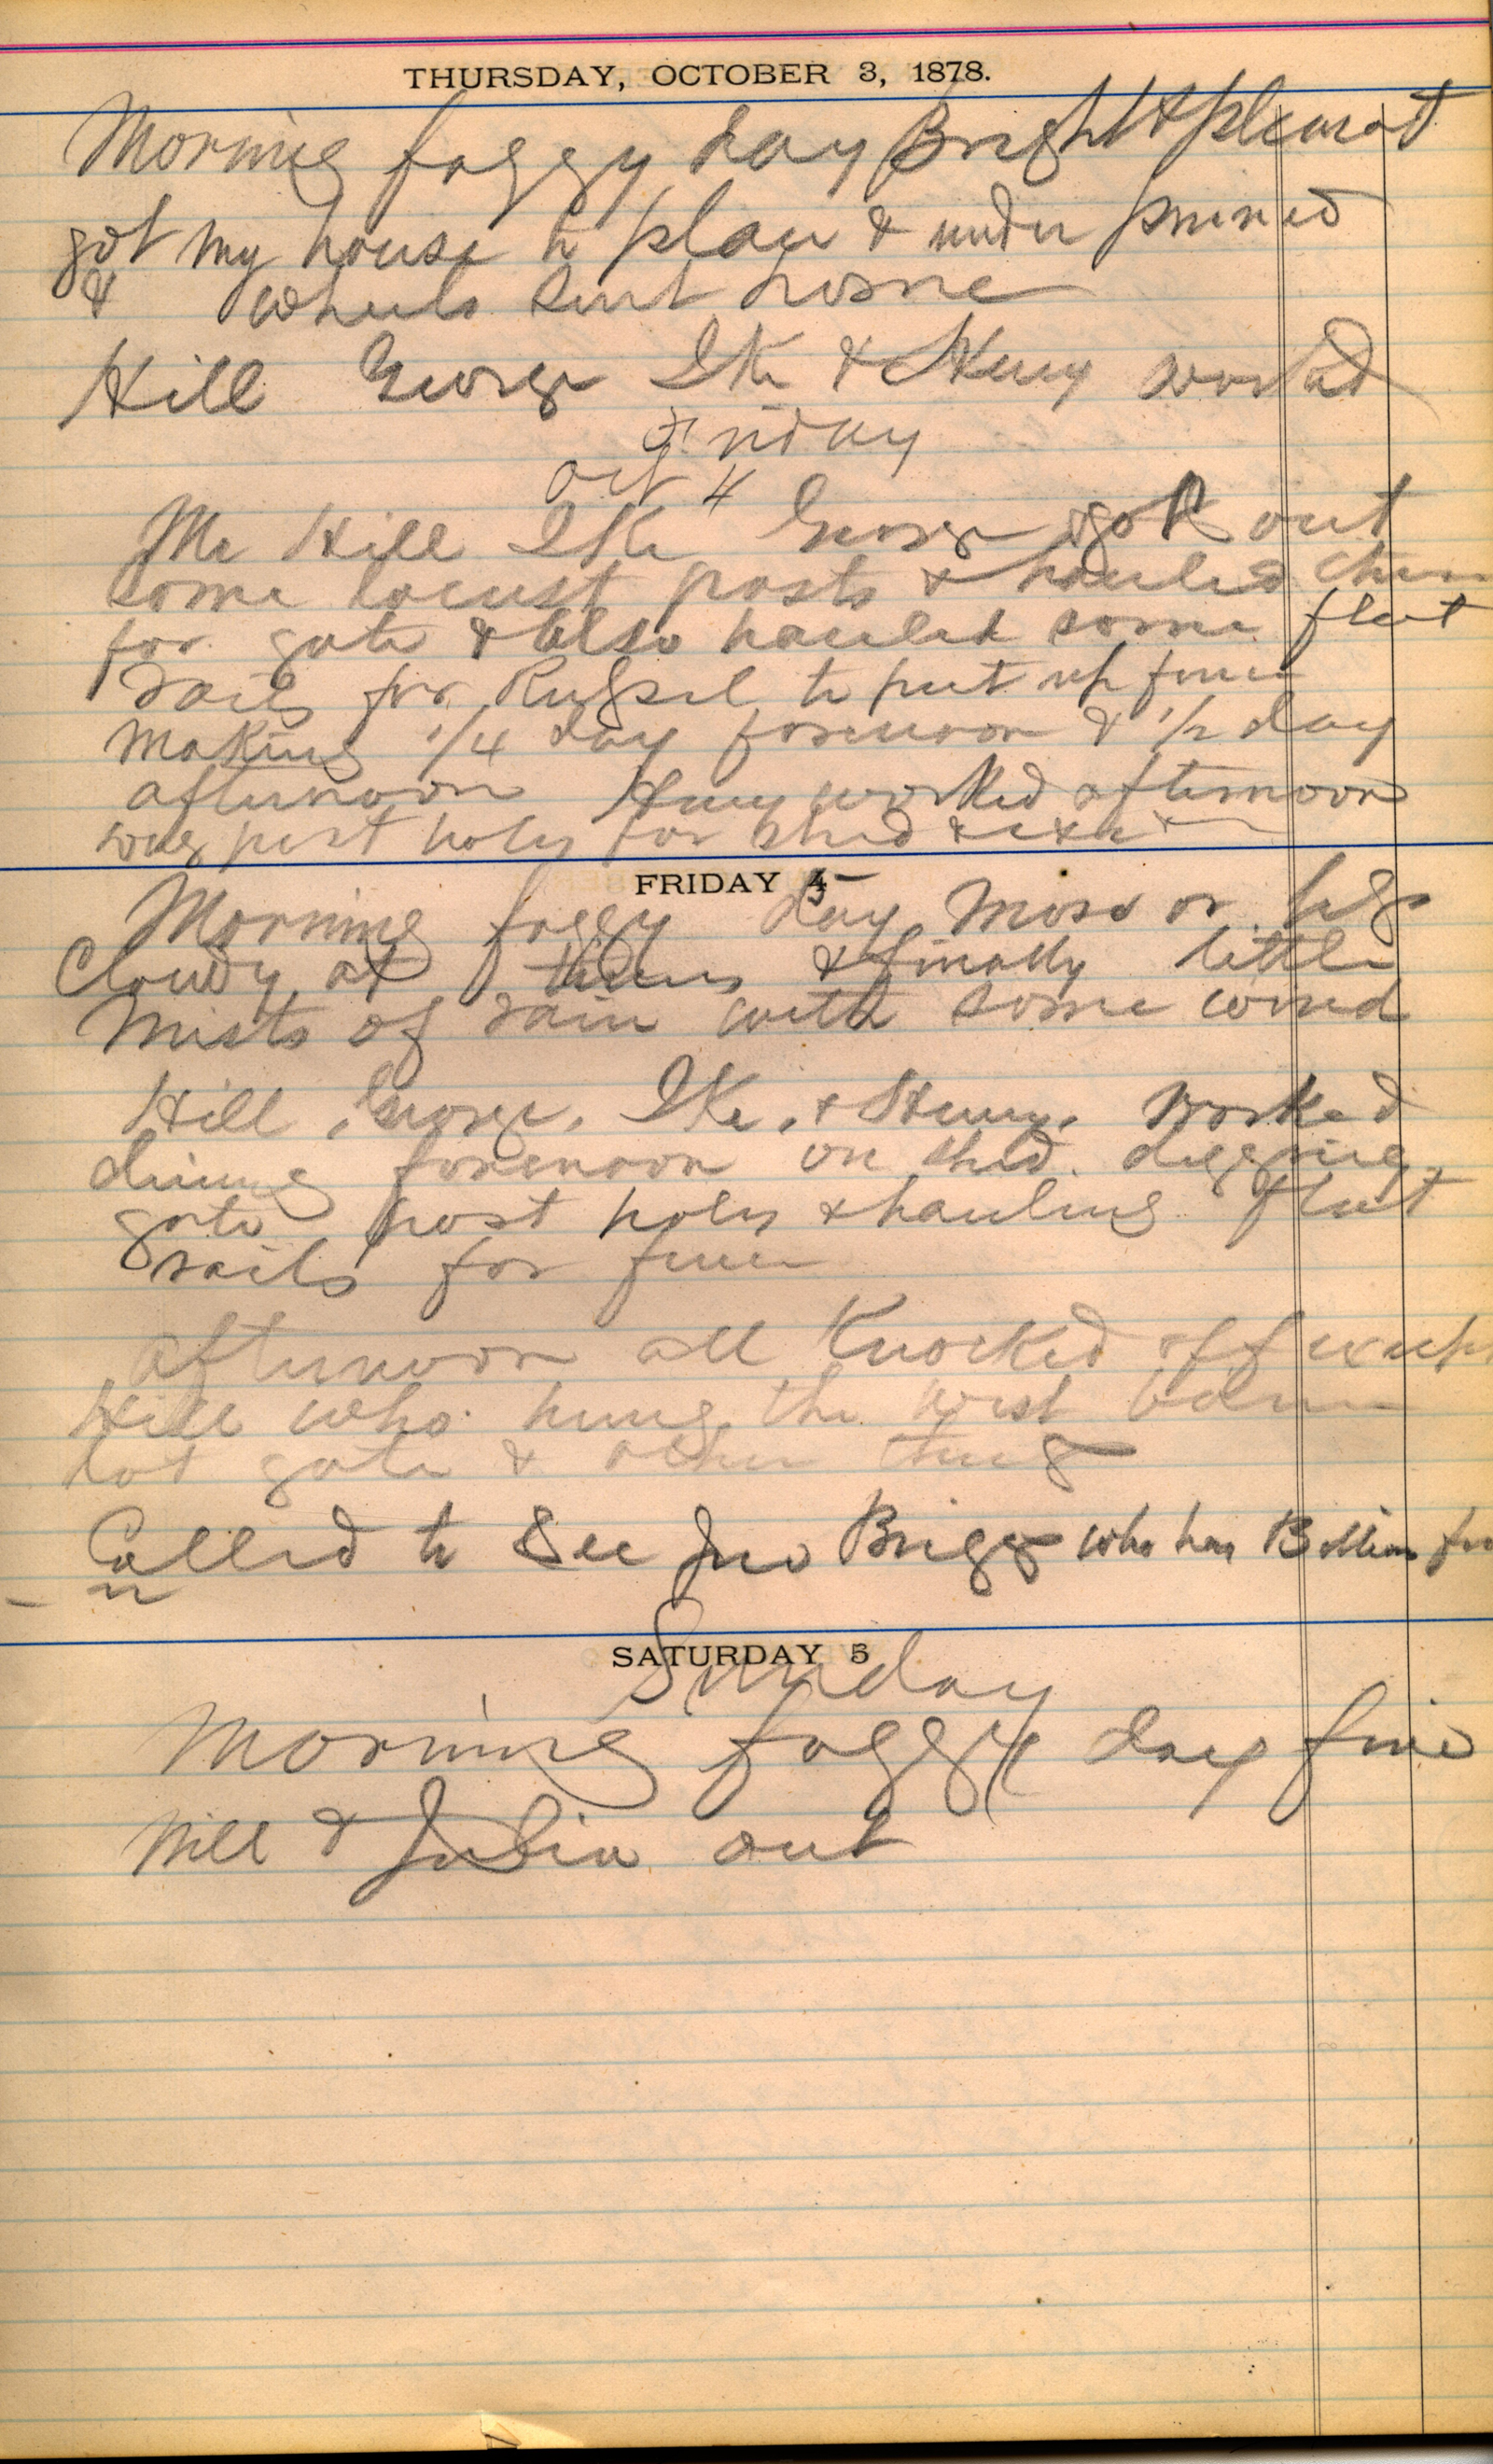 THURSDAY, OCTOBER 3, 1878.
Morning foggy day Bright & pleasant
got my house to place & under pinned
& wheels sent home
Hill George Ike & Henry worked
Friday
Oct 4
Mr Hill Ike George got out
some locust posts & hauled them
for gate & also hauled some flat
rails for Rufsel to put up fence
Making 1/4 day forenoon & 1/2 day
afternoon Henry worked afternoon
post holes for shed &
FRIDAY 4
Morning foggy day more or lefs
Cloudy at times & finally little
mists of rain with some wind
Hill, George, Ike, & Henry, worked
during forenoon on shed. digging
gate post holes & hauling flat
rails for fence
afternoon all Knocked off
Hill who hung the west
lot gate & other things
Called to See Jno Briggs who has
SATURDAY 5
Sunday
Morning foggy day fine
Will & Julia out